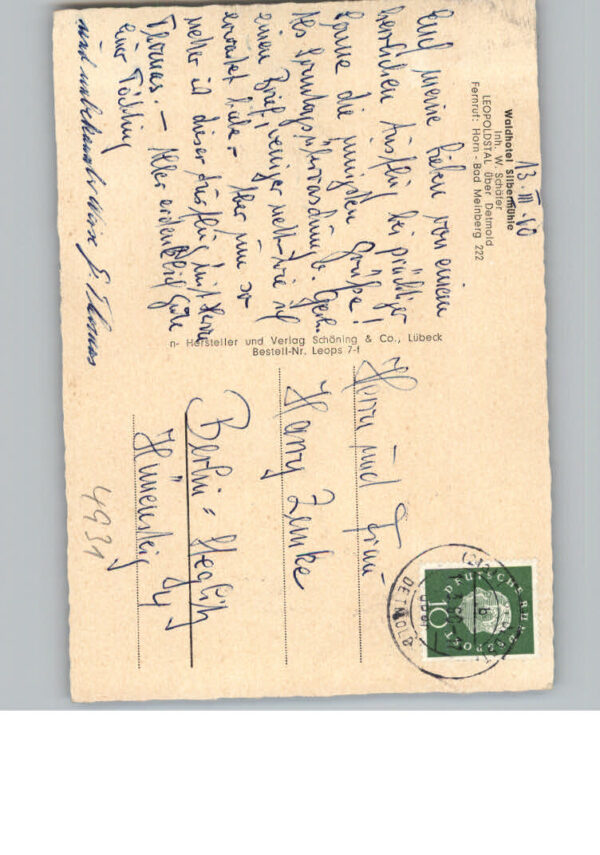 Waldhotel Silbermühle
Inh. W. Schäfer
LEOPOLDSTAL über Detmold
Fernruf: Horn - Bad Meinberg 222
13. III. 60
Euch meine Lieben von einem
herrlichen Ausflug bei prächtiger
Sonne die innigsten Grüße!
Des Sonntagsüberraschung b. Gerh.
einen Brief, weniger nett wie ich
erwartet habe. - Aber um so
netter ist dieser Ausflug mit Herrn
Thomas. - Aller erdenklich Gute
Eure
und unbekannter Weise G. Thomas
n- Hersteller und Verlag Schöning & Co., Lübeck
Bestell-Nr. Leops 7-f
Herrn und Frau
Harry Zemke
Berlin = Steglitz
Hünensteig
4931
DEUTSCHE BUNDESPOST
10
DETMOLD